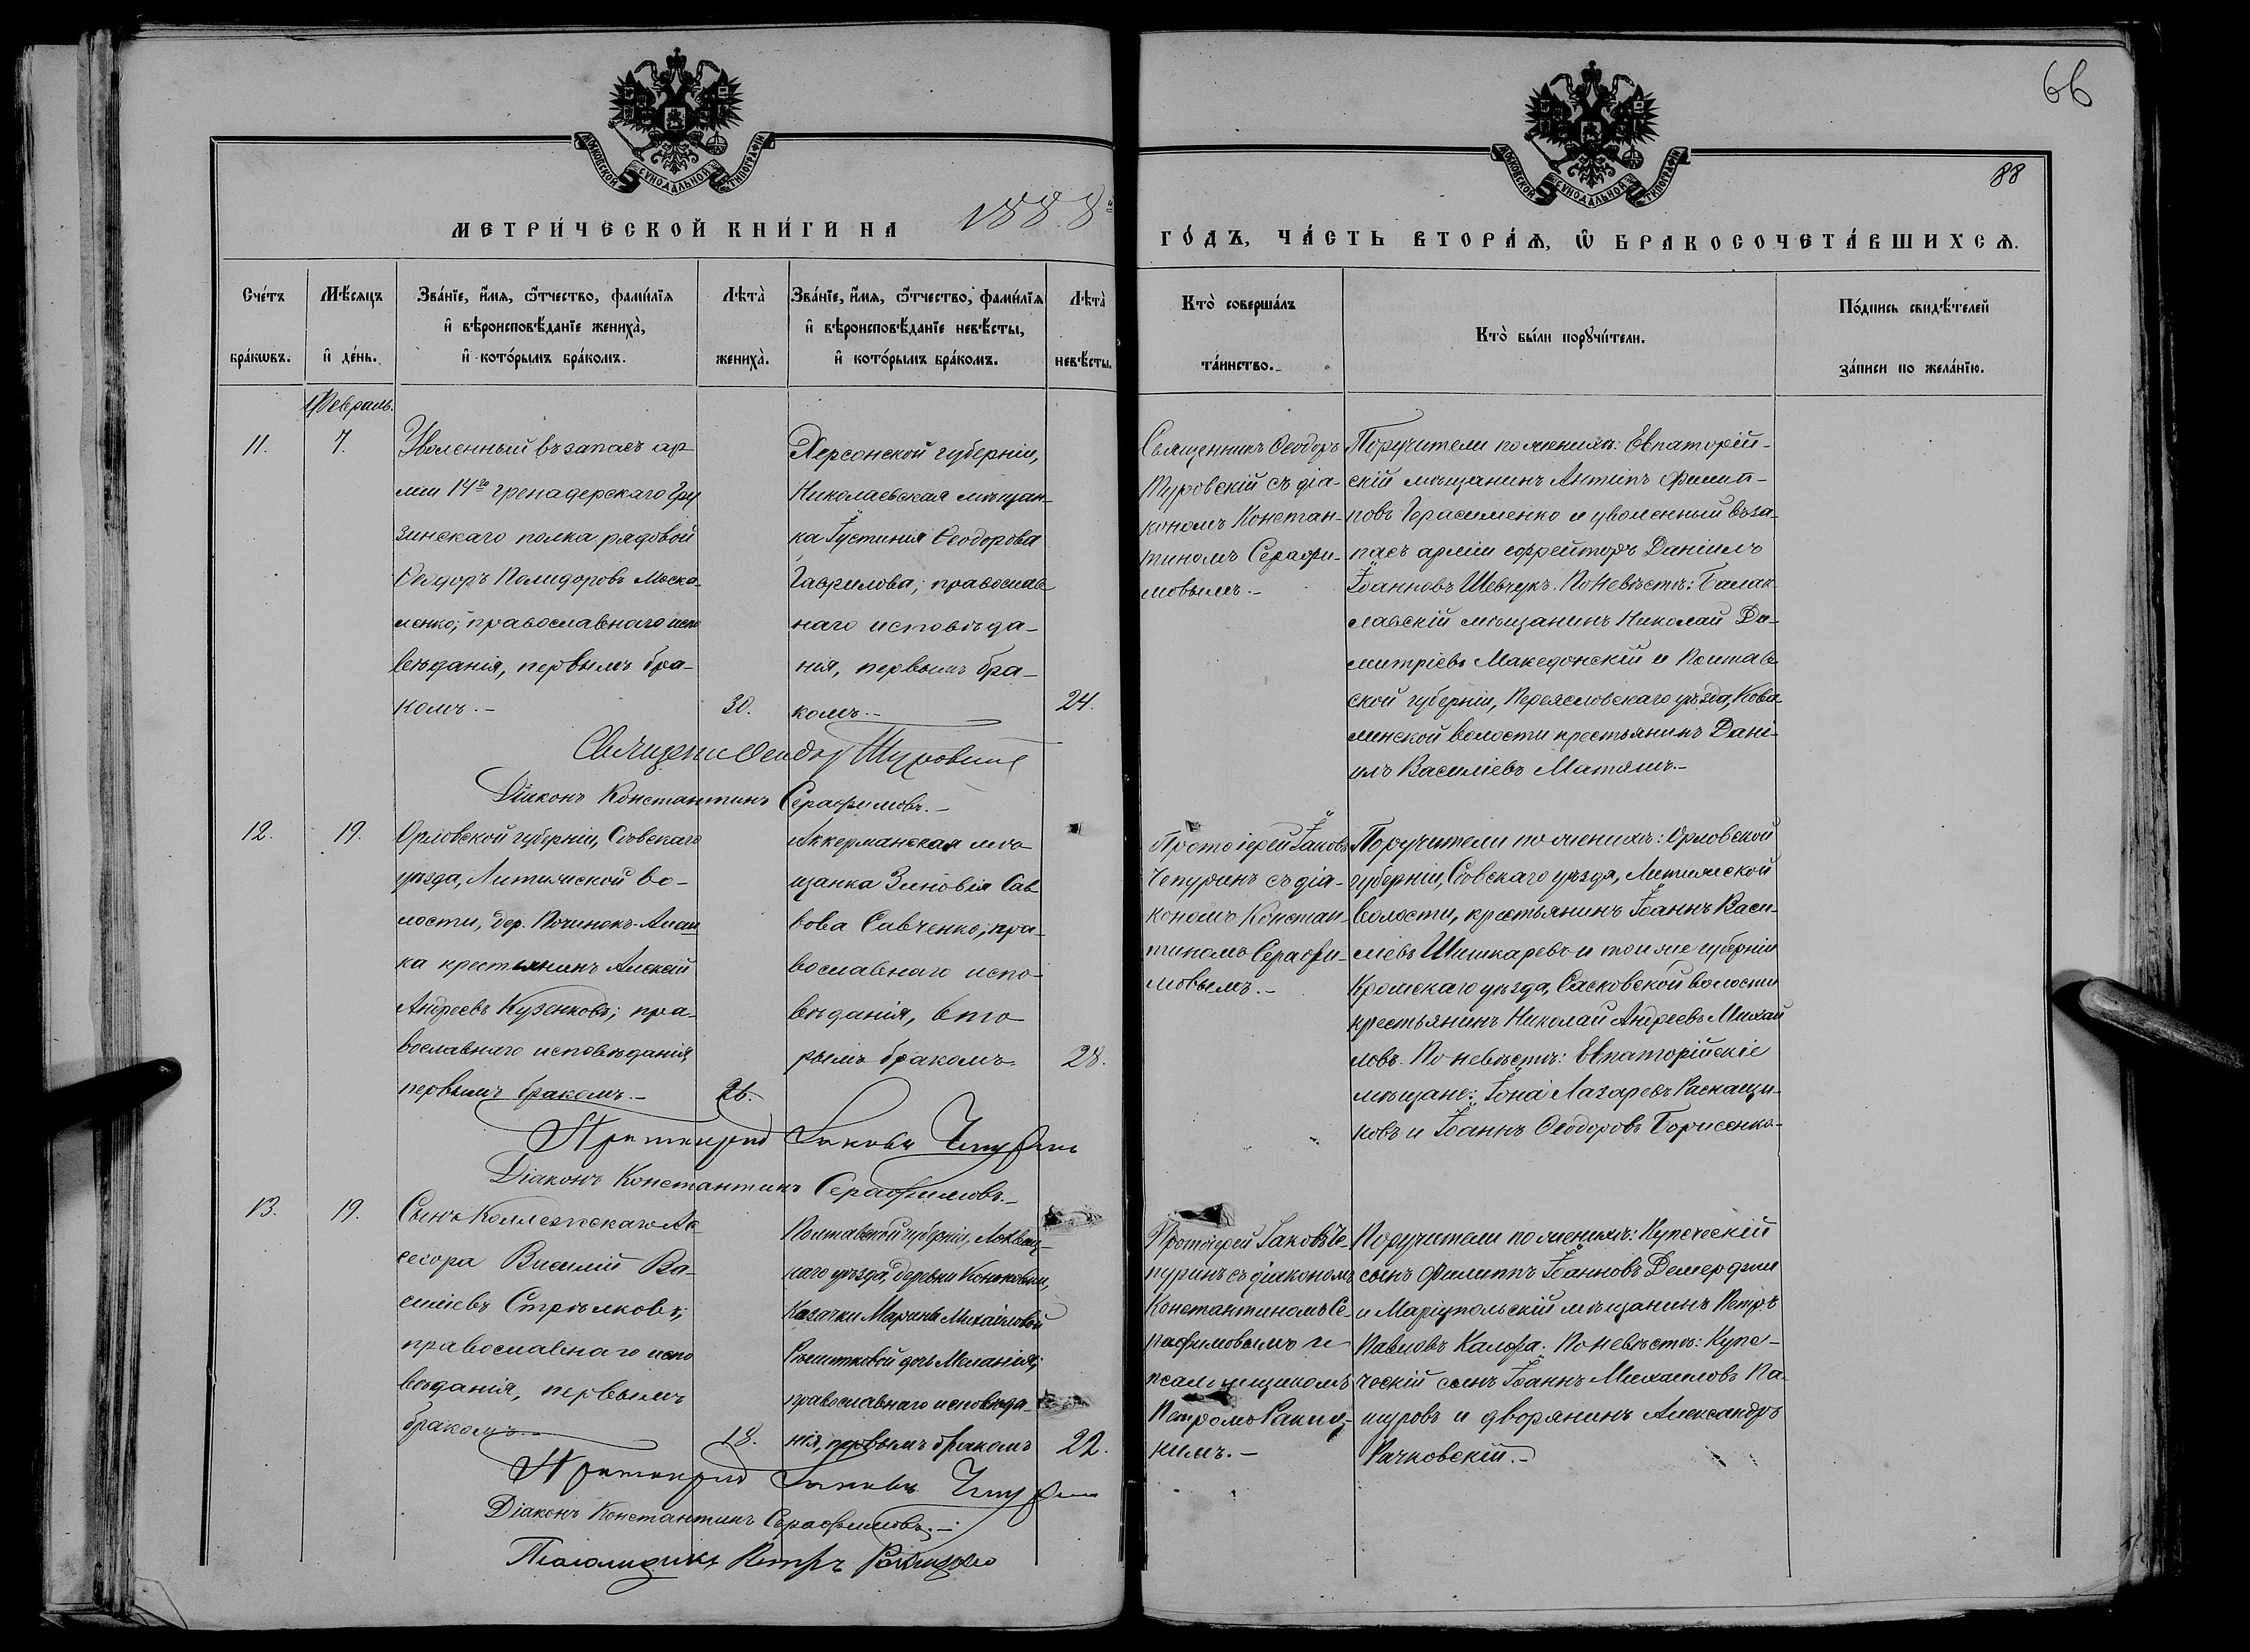 66
88
МОСКОВСКОЙ СѴНОДАЛЬНОЙ ТИПОГРАФІИ
МОСКОВСКОЙ СѴНОДАЛЬНОЙ ТИПОГРАФІИ
МЕТРИ́ЧЕСКОЙ КНИ́ГИ НА 1888й
ГО́ДЪ, ЧА́СТЬ ВТОРА́Ѧ, Ѡ҆ БРАКОСОЧЕТА́ВШИХСѦ.
Сче́тъ
бра́кѡвъ.
Мѣ́сяцъ
и҆ де́нь.
Зва́нїе, и҆́мя, ѻ҆́тчество, фами́лїя
и҆ вѣроисповѣ́данїе жениха̀,
и҆ кото́рымъ бра́комъ.
Лѣта̀
жениха̀.
Зва́нїе, и҆́мя, ѻ҆́тчество, фами́лїя
и҆ вѣроисповѣ́данїе невѣ́сты,
и҆ кото́рымъ бра́комъ.
Лѣта̀
невѣ́сты.
Кто̀ соверша́лъ
та́инство.
Кто̀ бы́ли порꙋчи́тели.
По́дпись свидѣ́телей
за́писи по жела́нїю.
Февраль.
11.
7.
Уволенный въ запасъ ар
міи 14го гренадерскаго Гру
зинскаго полка рядовой
Ѳеодоръ Полидоровъ Моска
ленко; православнаго испо
вѣданія, первымъ бра-
комъ.-
30.
Херсонской губерніи,
Николаевская мѣщан-
ка Іустинія Ѳеодорова
Гаврилова; православ
наго исповѣда-
нія, первымъ бра-
комъ.-
24.
Священникъ Ѳеодоръ
Туровскій съ діа-
кономъ Констан-
тиномъ Серафи-
мовымъ.-
Поручители по женихѣ: Евпаторій-
скій мѣщанинъ Антипъ Филип-
повъ Герасименко и уволенный въ за-
пасъ арміи ефрейторъ Даніилъ
Іоанновъ Шевчукъ. По невѣстѣ: Балак-
лавскій мѣщанинъ Николай Ди-
митріевъ Македонскій и Полтав
ской губерніи, Переясловскаго уѣзда, Кова
линской волости крестьянинъ Дані-
илъ Василіевъ Матяшъ.-
Діаконъ Константинъ Серафимовъ.-
12.
19.
Орловской губерніи, Сѣвскаго
уѣзда, Литижской во-
лости, дер. Починокъ-Алеш
ка крестьянинъ Алексѣй
Андреевъ Кузенковъ; пра-
вославнаго исповѣданія
первымъ бракомъ.-
26.
Аккерманская мѣ
щанка Зиновія Сав
вова Савченко; пра-
вославнаго испо-
вѣданія, вто
рымъ бракомъ.
28.
Протоіерей Іаковъ
Чепуринъ съ діа-
кономъ Констан-
тиномъ Серафи-
мовымъ.-
Поручители по женихѣ: Орловской
губерніи, Сѣвскаго уѣзда, Литижской
волости, крестьянинъ Іоаннъ Васи-
ліевъ Шишкаревъ и той же губерніи
Кромскаго уѣзда, Сасковской волости
крестьянинъ Николай Андреевъ Михай
ловъ. По невѣстѣ: Евпаторійскіе
мѣщане: Іона Лазаревъ Раскащи-
ковъ и Іоаннъ Ѳеодоровъ Борисенко-
Протоіерей Іаковъ Чепуринъ
Діаконъ Константинъ Серафимовъ.-
13.
19.
Сынъ Коллежскаго Ас
сесора Василій Ва-
силіевъ Стрѣлковъ;
православнаго испо
вѣданія, первымъ
бракомъ.-
18.
Полтавской губерніи, Лохвиц-
каго уѣзда, деревни
Казачки Марины Михайловой
дочь Меланія;
православнаго исповѣда-
нія, первымъ бракомъ
22.
Протоіерей Іаковъ Че-
пуринъ съ діакономъ
Константиномъ Се-
рафимовымъ и
псаломщикомъ
Петромъ
Поручители по женихѣ: Купеческій
сынъ Филиппъ Іоанновъ Демерджи
и Маріупольскій мѣщанинъ Петръ
Павловъ Калфа. По невѣстѣ: Купе-
ческій сынъ Іоаннъ Михаиловъ Па-
шуровъ и дворянинъ Александръ
Рачковскій.-
Протоіерей Іаковъ Чепуринъ
Діаконъ Константинъ Серафимовъ.-
Псаломщикъ Петръ